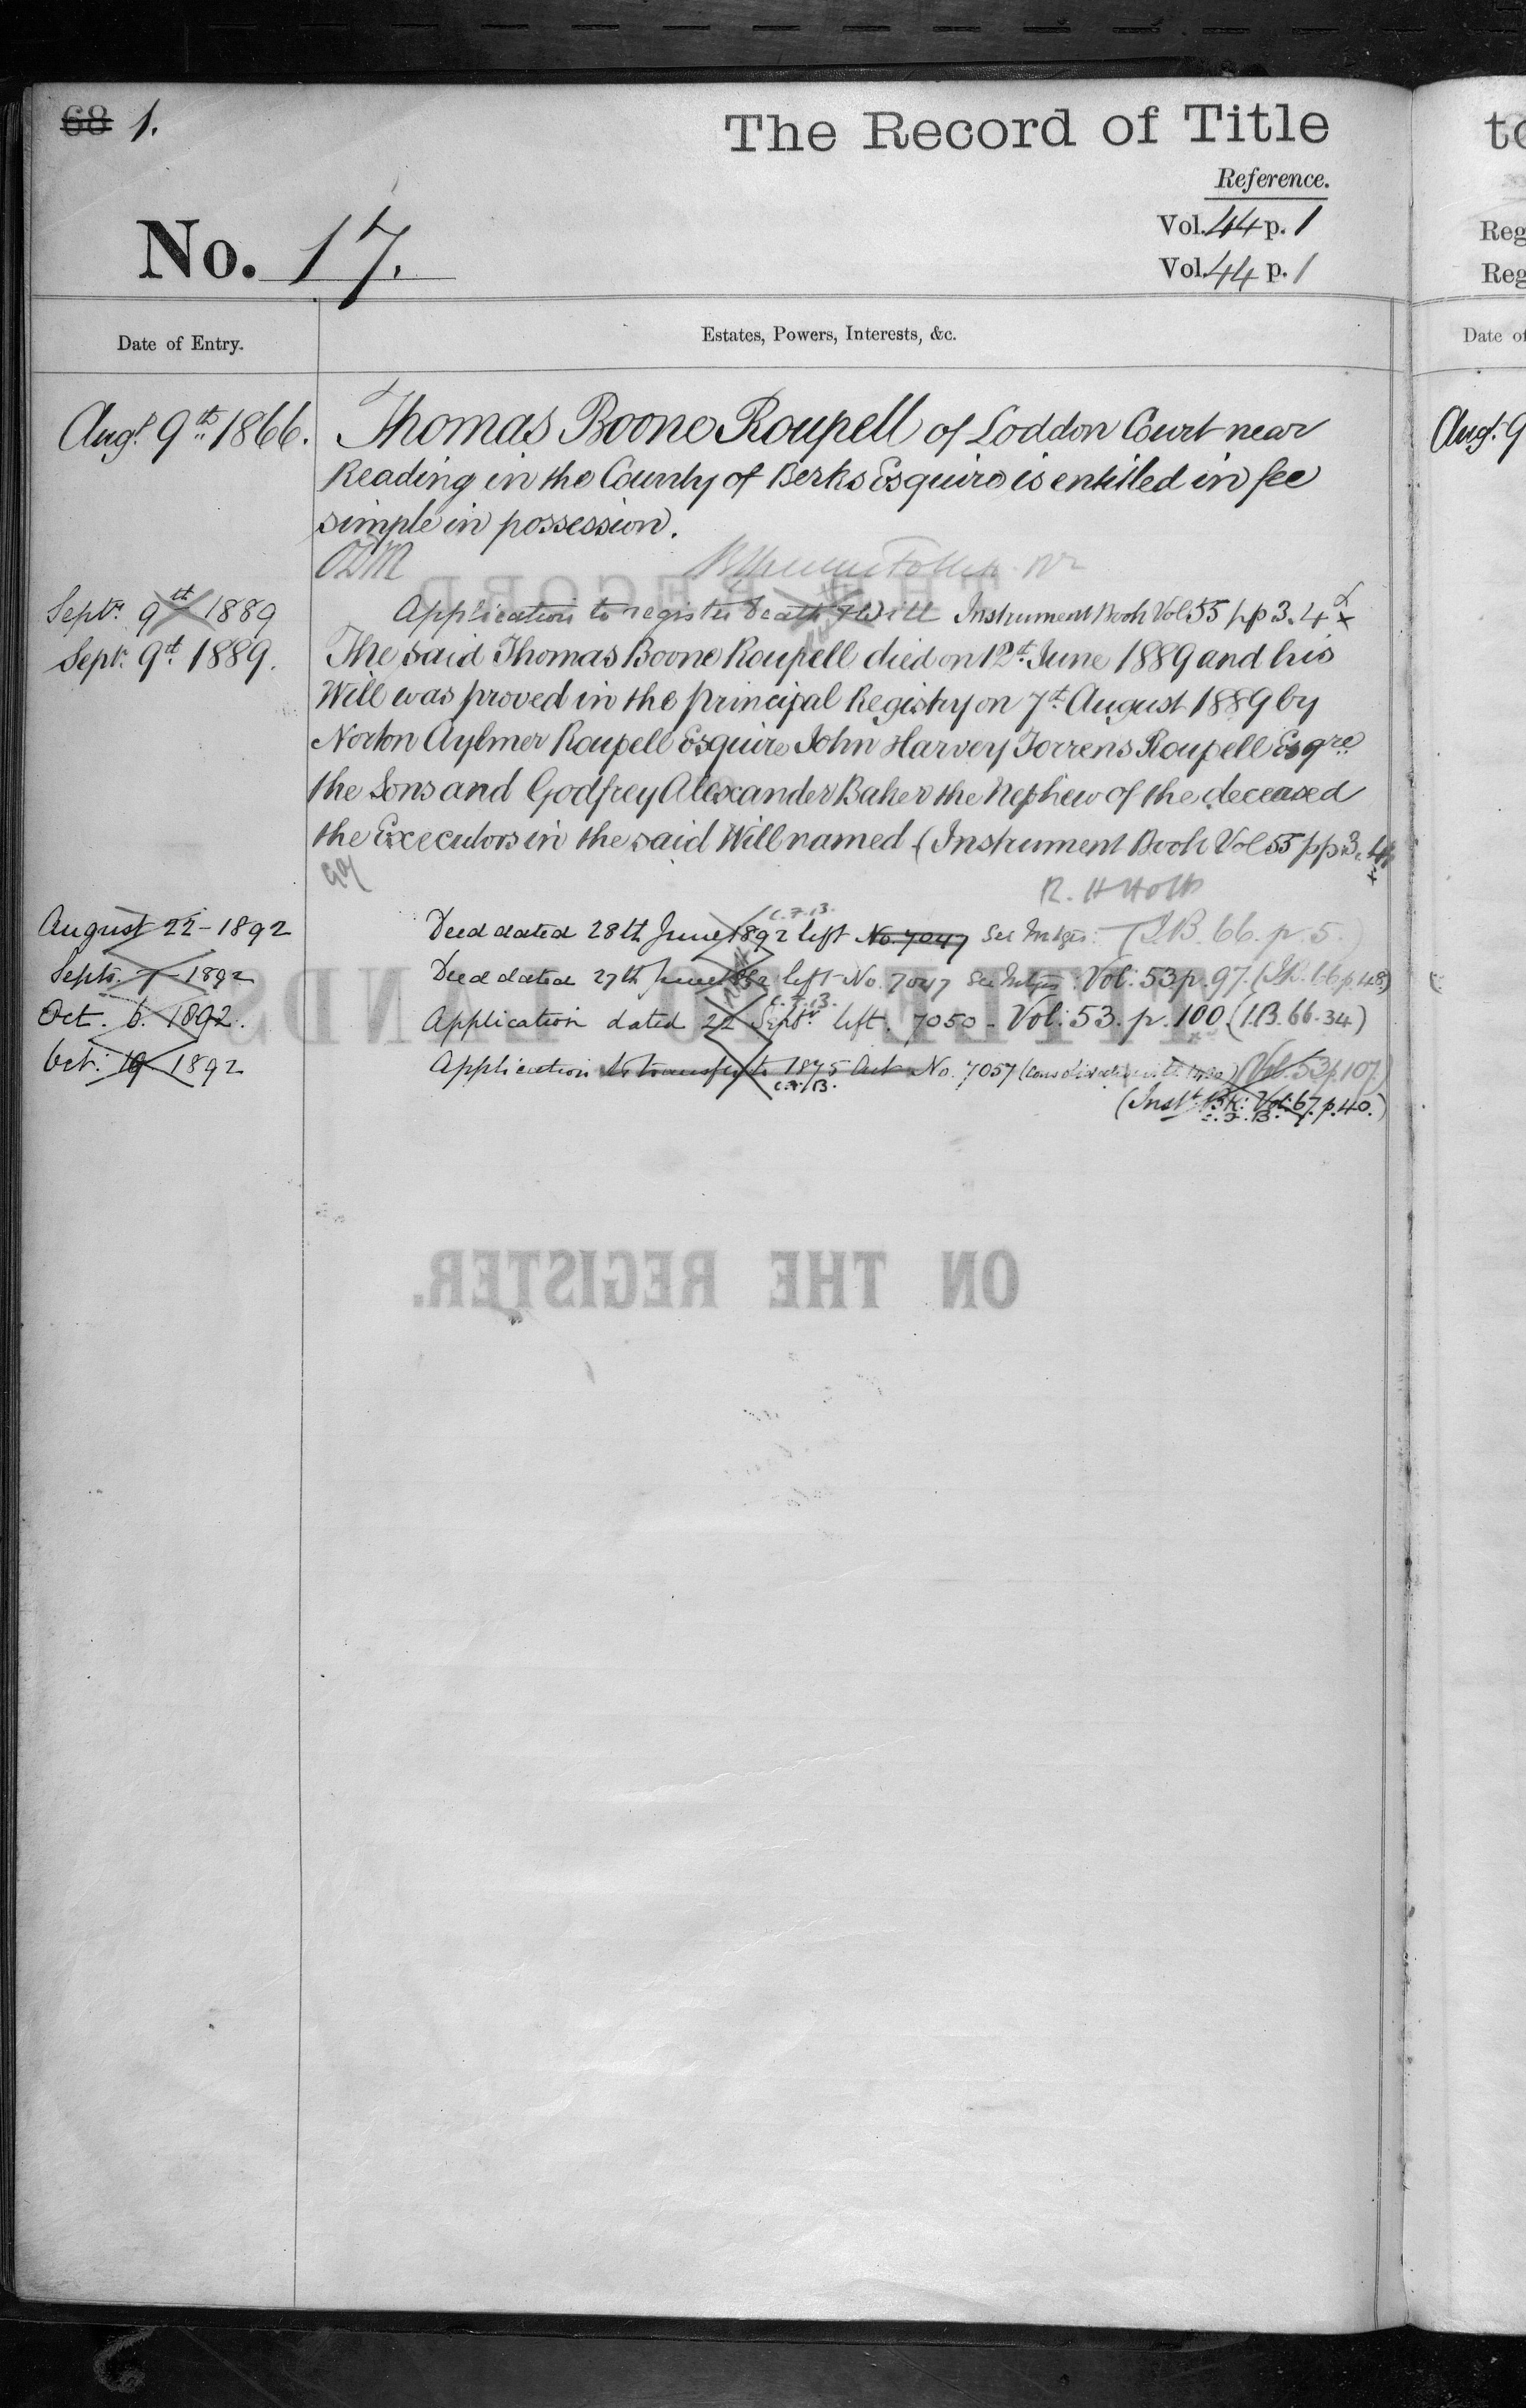 68 1.
The Record of Title
Reference.
No. 17.
Vol. 44 p. 1
Vol. 44 p. 1
Date of Entry.
Estates, Powers, Interests, &c.
Augt. 9th 1866.
Thomas Boone Roupell of Loddon Court near
Reading in the County of Berks Esquire is entitled in fee
simple in possession.
Septr. 9th 1889
Application to register Death & Will Instrument Book Vol 55 pp 3. 4
Sept. 9th 1889.
The said Thomas Boone Roupell died on 12th June 1889 and his
Will was proved in the principal Registry on 7th August 1889 by
Norton Aylmer Roupell Esquire John Harvey Torrens Roupell Esqre
the Sons and Godfrey Alexander Baker the Nephew of the deceased
the Executors in the said Will named (Instrument Book Vol 55 pp 3. 4
R. H Holt
August 22 - 1892
Deed dated 28th June 1892 left No. 7047 See (I.B. 66. p. 5.
C.F.B.
Septr. 7 - 1892
Deed dated 27th June left No. 7047 See Vol: 53 p. 97. (I.B. 66 p 48)
Oct. 6. 1892.
C.F.B.
Application dated 22 Septr left. 7050 - Vol: 53. p. 100 (I.B. 66. 34)
Oct: 19 1892
Application to transfer to 1875 Act No. 7057 (consolidated with (Vol. 53 p. 107.)
C.F.B.
(Instt. Bk: Vol: 67. p. 40.)
C.F.B.
THE RECORD
TITLE TO LANDS
ON THE REGISTER.
to
Reg
Reg
Date of
Augt. 9